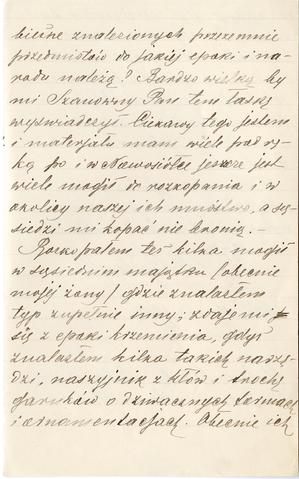 bliżne znalezionych przezemnie
przedmiotów do jakiej epoki i na-
rodu należą? Bardzo wielką by
mi Szanowny Pan tem łaskę
wyświadczył. Ciekawy tego jestem
i materjału mam wiele pod rę-
ką bo i w Nowosiółce jeszcze jest
wiele mogił do rozkopania i w
okolicy naszej ich mnóstwo, a są-
siedzi mi kopać nie bronią.
Rozkopałem też kilka mogił
w sąsiednim majątku (obecnie
mojej żony) gdzie znalazłem
typ zupełnie inny; zdaje mi
się z epoki krzemienia, gdyż
znalazłem kilka takich narzę-
dzi, naszyjnik z kłów i trochę
garnków o dziwacznych formach
i ornamentacjach. Obecnie ich